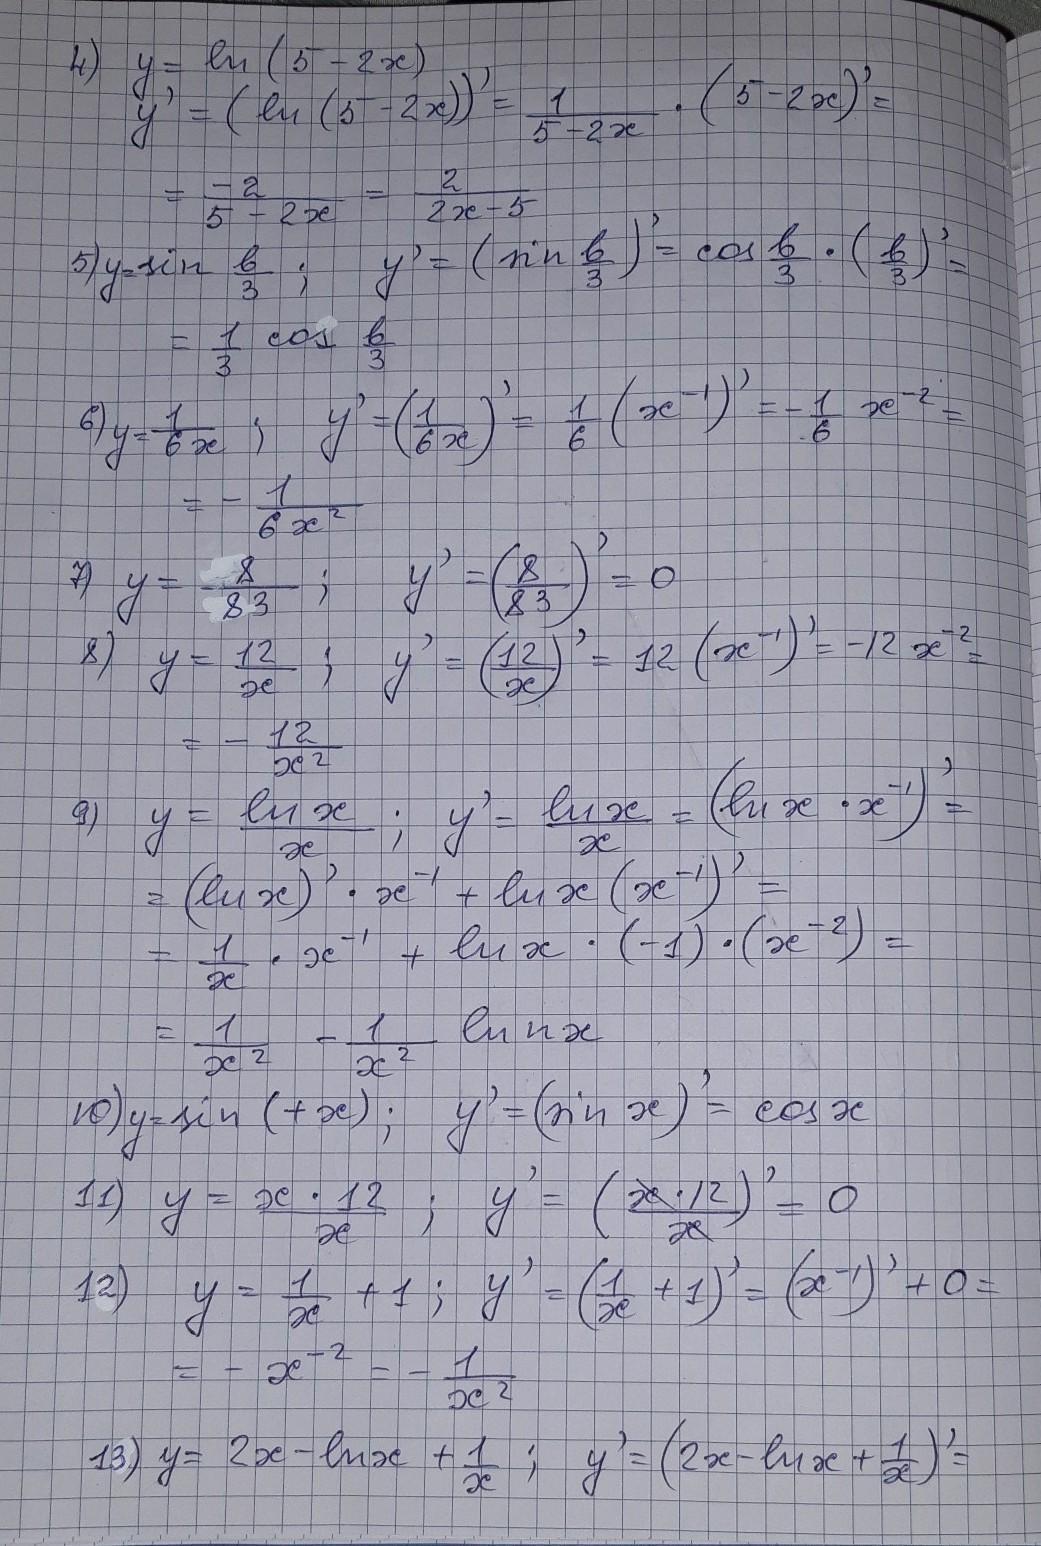 4) y = ln (5 - 2x)
y' = (ln (5 - 2x))' = 1/(5 - 2x) · (5 - 2x)' =
= -2/(5 - 2x) = 2/(2x - 5)
5) y = sin b/3 ; y' = (sin b/3)' = cos b/3 · (b/3)' =
= 1/3 cos b/3
6) y = 1/6x ; y' = (1/6x)' = 1/6 (x⁻¹)' = - 1/6 x⁻² =
= - 1/6x²
7) y = 8/83 ; y' = (8/83)' = 0
8) y = 12/x ; y' = (12/x)' = 12 (x⁻¹)' = -12 x⁻² =
= - 12/x²
9) y = ln x/x ; y' = ln x/x = (ln x · x⁻¹)' =
= (ln x)' · x⁻¹ + ln x (x⁻¹)' =
= 1/x · x⁻¹ + ln x · (-1) · (x⁻²) =
= 1/x² - 1/x² ln nx
10) y = sin (+x) ; y' = (sin x)' = cos x
11) y = x · 12/x ; y' = (x · 12/x)' = 0
12) y = 1/x + 1 ; y' = (1/x + 1)' = (x⁻¹)' + 0 =
= - x⁻² = - 1/x²
13) y = 2x - ln x + 1/x ; y' = (2x - ln x + 1/x)' =